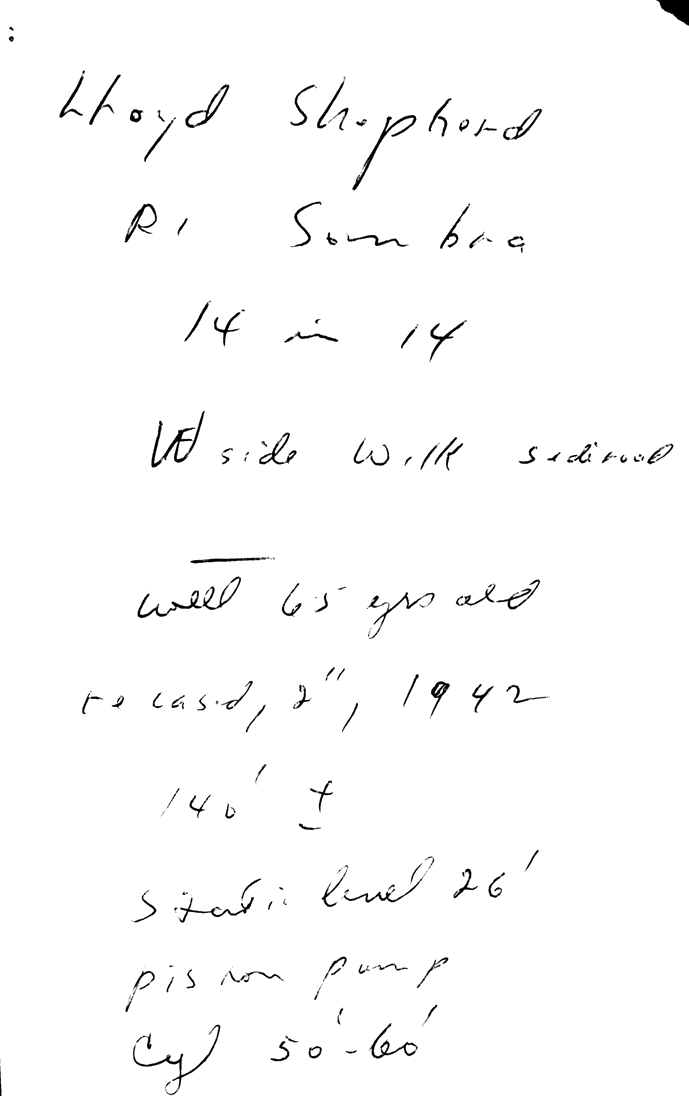 Lloyd Shepherd
R1 Sombra
14 in 14
W side Wilk sideroad
well 65 yrs old
recased, 2", 1942
140' ±
Static level 26'
piston pump
Cyl 50'-60'